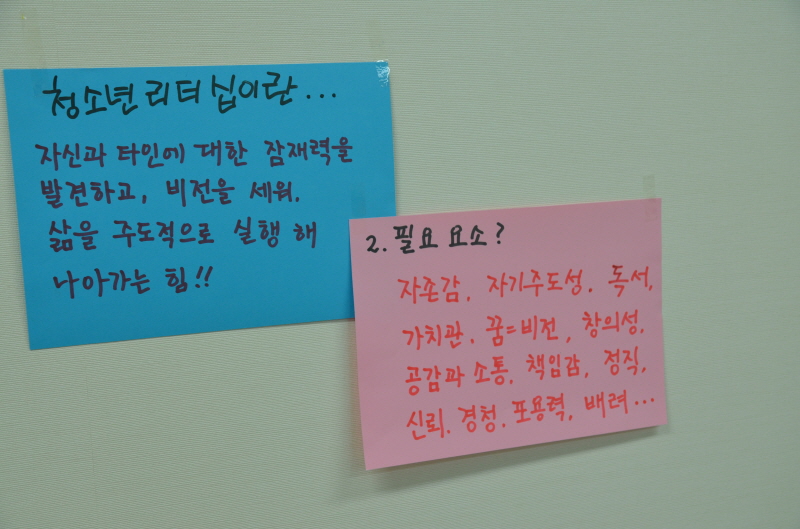 청소년 리더십이란...
자신과 타인에 대한 잠재력을
발견하고, 비전을 세워.
삶을 주도적으로 실행 해
나아가는 힘!!
2. 필요 요소?
자존감. 자기주도성. 독서,
가치관. 꿈=비전, 창의성.
공감과 소통. 책임감, 정직,
신뢰. 경청. 포용력, 배려...